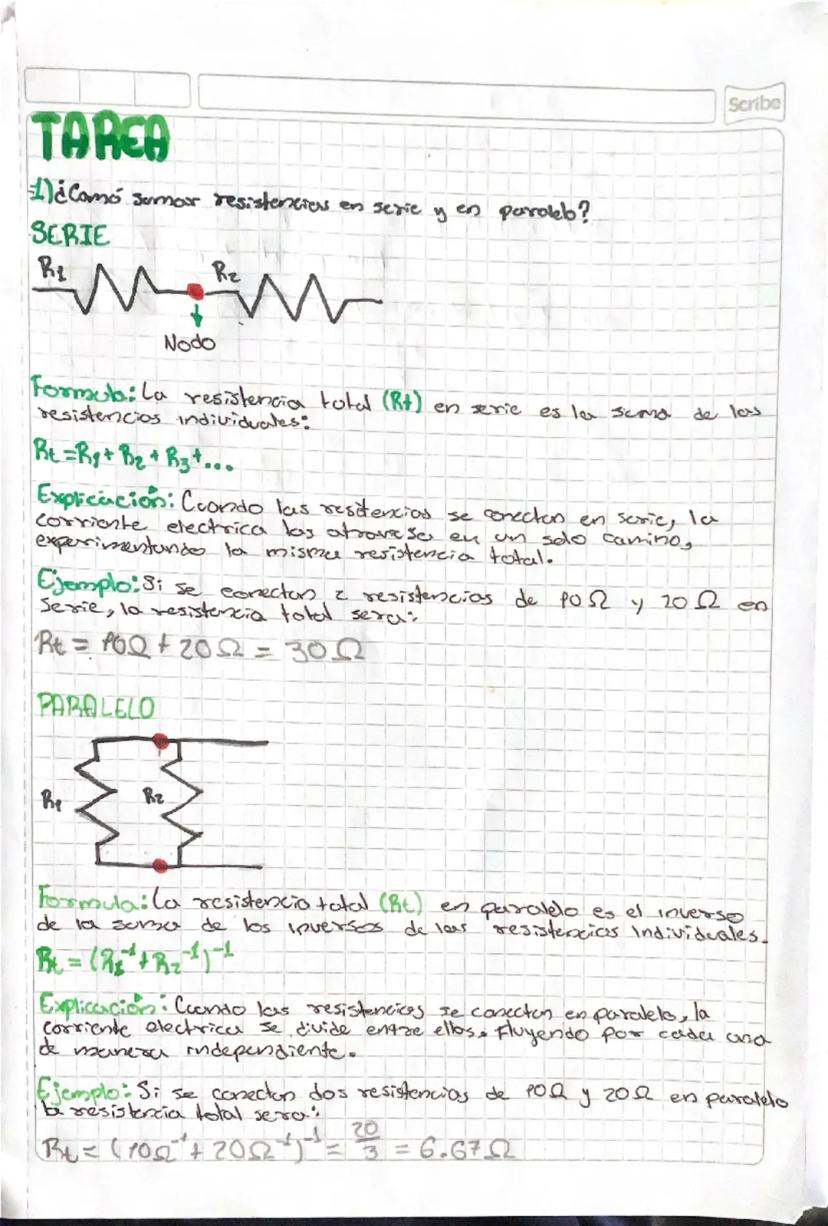 Scribe
TAREA
1) ¿Comó sumar resistencias en serie y en paralelo?
SERIE
R1 R2
Nodo
Formula: La resistencia total (Rt) en serie es la suma de las
resistencias individuales:
Rt = R1 + R2 + R3 + ...
Explicación: Cuando las resistencias se conectan en serie, la
corriente electrica las atraviesa en un solo camino,
experimentando la misma resistencia total.
Ejemplo: Si se conectan 2 resistencias de 10 Ω y 20 Ω en
serie, la resistencia total sera:
Rt = 10Ω + 20Ω = 30Ω
PARALELO
R1 R2
Formula: La resistencia total (Rt) en paralelo es el inverso
de la suma de los inversos de las resistencias individuales.
Rt = (R1⁻¹ + R2⁻¹)⁻¹
Explicación: Cuando las resistencias se conectan en paralelo, la
corriente electrica se divide entre ellas, fluyendo por cada una
de manera independiente.
Ejemplo: Si se conectan dos resistencias de 10Ω y 20Ω en paralelo
la resistencia total sera:
Rt = (10Ω⁻¹ + 20Ω⁻¹)⁻¹ = 20/3 = 6.67Ω